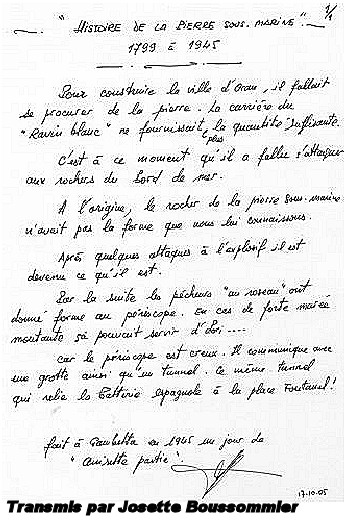 1/1
"HISTOIRE DE LA PIERRE SOUS-MARINE".
1799 à 1945
Pour construire la ville d'Oran, il fallait
se procurer de la pierre. La carrière du
"Ravin blanc" ne fournissait plus la quantité suffisante.
C'est à ce moment qu'il a fallu s'attaquer
aux rochers du bord de mer.
A l'origine, le rocher de la pierre sous-marine
n'avait pas la forme que nous lui connaissons.
Après quelques attaques à l'explosif il est
devenu ce qu'il est.
Par la suite les pêcheurs "au roseau" ont
donné forme au périscope. En cas de forte marée
montante ça pouvait servir d'abri....
Car le périscope est creux. Il communique avec
une grotte ainsi qu'un tunnel. Ce même tunnel
qui relie la batterie espagnole à la place Fontanel!
fait à Gambetta en 1945 un jour de
"partie".
17.10.05
Transmis par Josette Boussommier